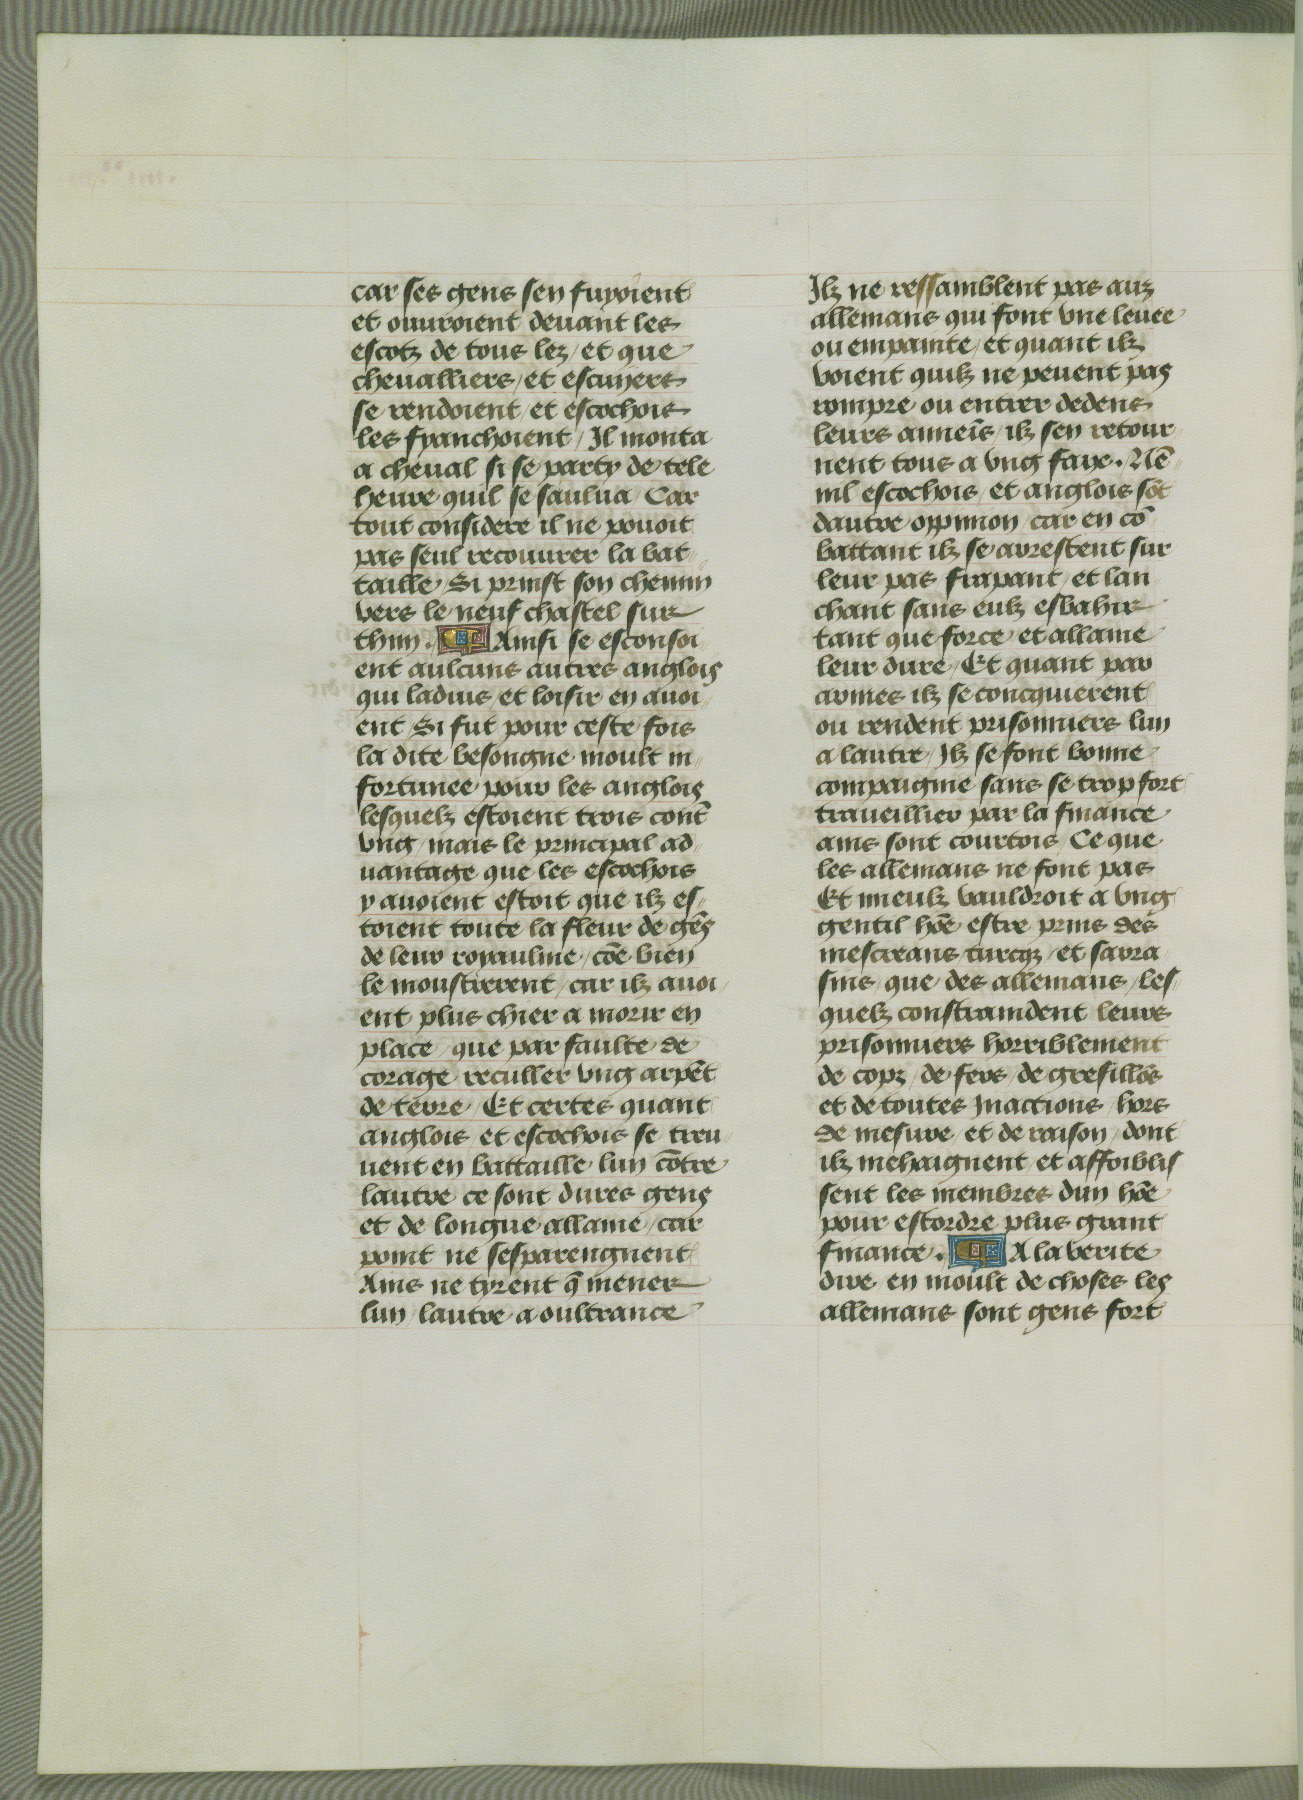 car ses gens sen fuyoient
et ouuroient deuant les
escotz de tous lez / et que
cheualliers / et escuyers
se rendoient / et escochois
les fyanchoient / Il monta
a cheual si se party de tele
heure quil se saulua / Car
tout considere il ne pouoit
pas seul recouurer la bat
taille / Si prinst son chemin
vers le neuf chastel sur
thin . Ainsi se esconsoi
ent aulcuns autres anglois
qui laduis / et loisir en auoi
ent / Si fut pour ceste fois
la dite besongne moult in
fortunee pour les anglois
lesquelz estoient trois cont̄
vng / mais le principal ad
uantage que les escochois
y auoient estoit que ilz es
toient toute la fleur de gēs
de leur royaulme / cōe bien
le moustrerent / car ilz auoi
ent plus chier a morir en
place / que par faulte de
corage reculler vng arpēt
de terre / Et certes quant
anglois et escochois se treu
uent en battaille lun cōtre
lautre ce sont dures gens
et de longue allaine / car
point ne sesparengnent
Ains ne tyrent q̄ mener
lun / lautre a oultrance
Ilz ne ressamblent pas auz
allemans qui font vne leuee
ou empainte / et quant ilz
voient quilz ne peuent pas
rompre ou entrer dedens
leurs annemīs / ilz sen retour
nent tous a vng faix . Nē
nil escochois / et anglois sōt
dautre oppinion / car en cō
battant ilz se arrestent sur
leur pas frapant / et lan
chant sans eulz esbahir
tant que force et allaine
leur dure / Et quant par
armes ilz se concquierent
ou rendent prisonniers lun
a lautre / Ilz se font bonne
compaignie sans se trop fort
traueillier par la finance
ains sont courtois / Ce que
les allemans ne font pas
Et mieulz vauldroit a vng
gentil hōe estre prins des
mescreans turcqz / et sarra
sins que des allemans / les
quelz constraindent leurs
prisonniers horriblement
de copz / de fers / de gresillōs
et de toutes Inactions / hors
de mesure / et de raison / dont
ilz mehaignent / et affoiblis
sent les membres dun hōe
pour estordre plus grant
finance . A la verite
dire en moult de choses les
allemans sont gens fort